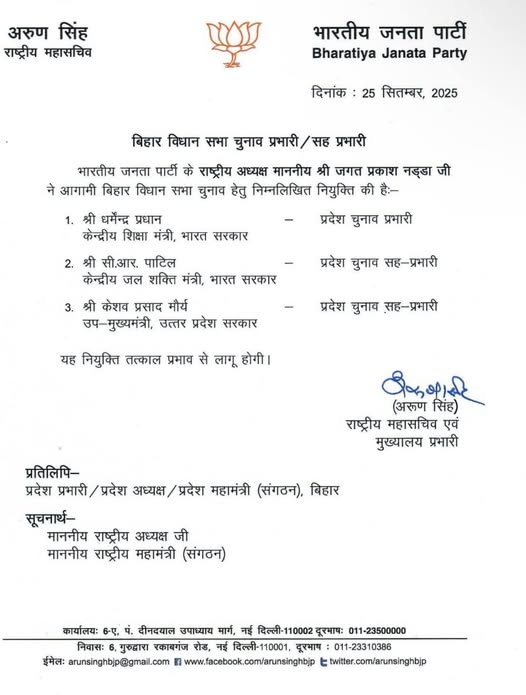 अरुण सिंह
राष्ट्रीय महासचिव
भारतीय जनता पार्टी
Bharatiya Janata Party
दिनांक : 25 सितम्बर, 2025
बिहार विधान सभा चुनाव प्रभारी/सह प्रभारी
भारतीय जनता पार्टी के राष्ट्रीय अध्यक्ष माननीय श्री जगत प्रकाश नड्डा जी
ने आगामी बिहार विधान सभा चुनाव हेतु निम्नलिखित नियुक्ति की है:–
1. श्री धर्मेन्द्र प्रधान – प्रदेश चुनाव प्रभारी
केन्द्रीय शिक्षा मंत्री, भारत सरकार
2. श्री सी.आर. पाटिल – प्रदेश चुनाव सह–प्रभारी
केन्द्रीय जल शक्ति मंत्री, भारत सरकार
3. श्री केशव प्रसाद मौर्य – प्रदेश चुनाव सह–प्रभारी
उप–मुख्यमंत्री, उत्तर प्रदेश सरकार
यह नियुक्ति तत्काल प्रभाव से लागू होगी।
(अरूण सिंह)
राष्ट्रीय महासचिव एवं
मुख्यालय प्रभारी
प्रतिलिपि–
प्रदेश प्रभारी/प्रदेश अध्यक्ष/प्रदेश महामंत्री (संगठन), बिहार
सूचनार्थ–
माननीय राष्ट्रीय अध्यक्ष जी
माननीय राष्ट्रीय महामंत्री (संगठन)
कार्यालयः 6-ए, पं. दीनदयाल उपाध्याय मार्ग, नई दिल्ली-110002 दूरभाषः 011-23500000
निवासः 6, गुरुद्वारा रकाबगंज रोड, नई दिल्ली-110001, दूरभाष : 011-23310386
ईमेलः arunsinghbjp@gmail.com www.facebook.com/arunsinghbjp twitter.com/arunsinghbjp